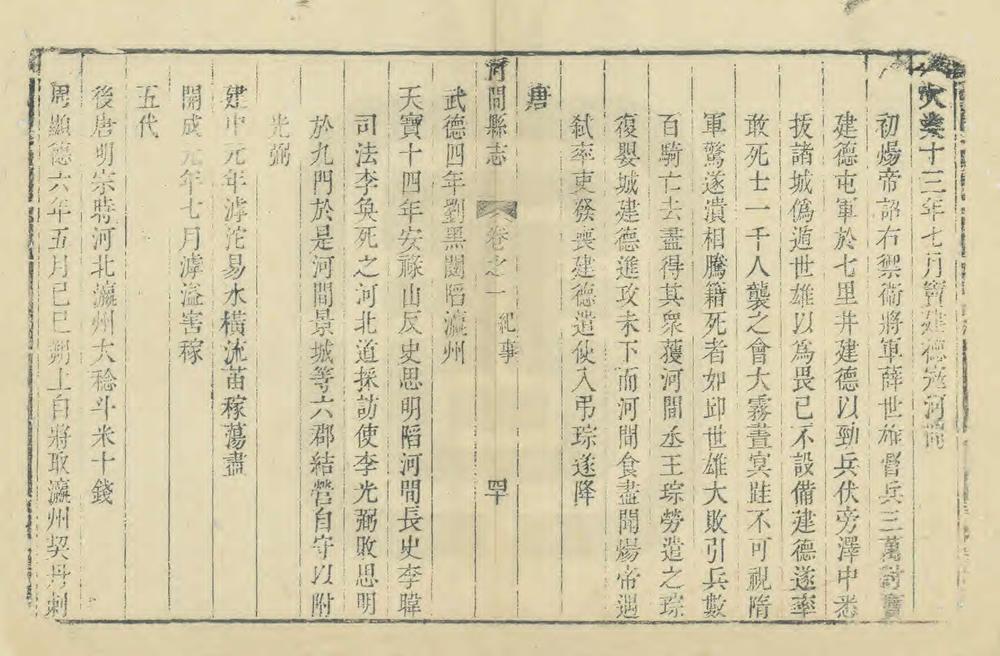 大業十三年七月竇建德寇河間
初煬帝詔右禦衛將軍薛世雄督兵三萬討竇
建德屯軍於七里井建德以勁兵伏旁澤中悉
拔諸城偽遁世雄以為畏己不設備建德遂率
敢死士一千人襲之會大霧晝冥跬不可視隋
軍驚遂潰相騰籍死者如邱世雄大敗引兵數
百騎亡去盡得其衆獲河間丞王琮勞遣之琮
復嬰城建德進攻未下而河間食盡聞煬帝遇
弑率吏發喪建德遣使入弔琮遂降
唐
河間縣志 卷之一 紀事 四十
武德四年劉黑闥陷瀛州
天寶十四年安祿山反史思明陷河間長史李暐
司法李奐死之河北道採訪使李光弼敗思明
於九門於是河間景城等六郡結營自守以附
光弼
建中元年滹沱易水橫流苗稼蕩盡
開成元年七月滹溢害稼
五代
後唐明宗時河北瀛州大稔斗米十錢
周顯德六年五月己巳朔上自將取瀛州契丹刺